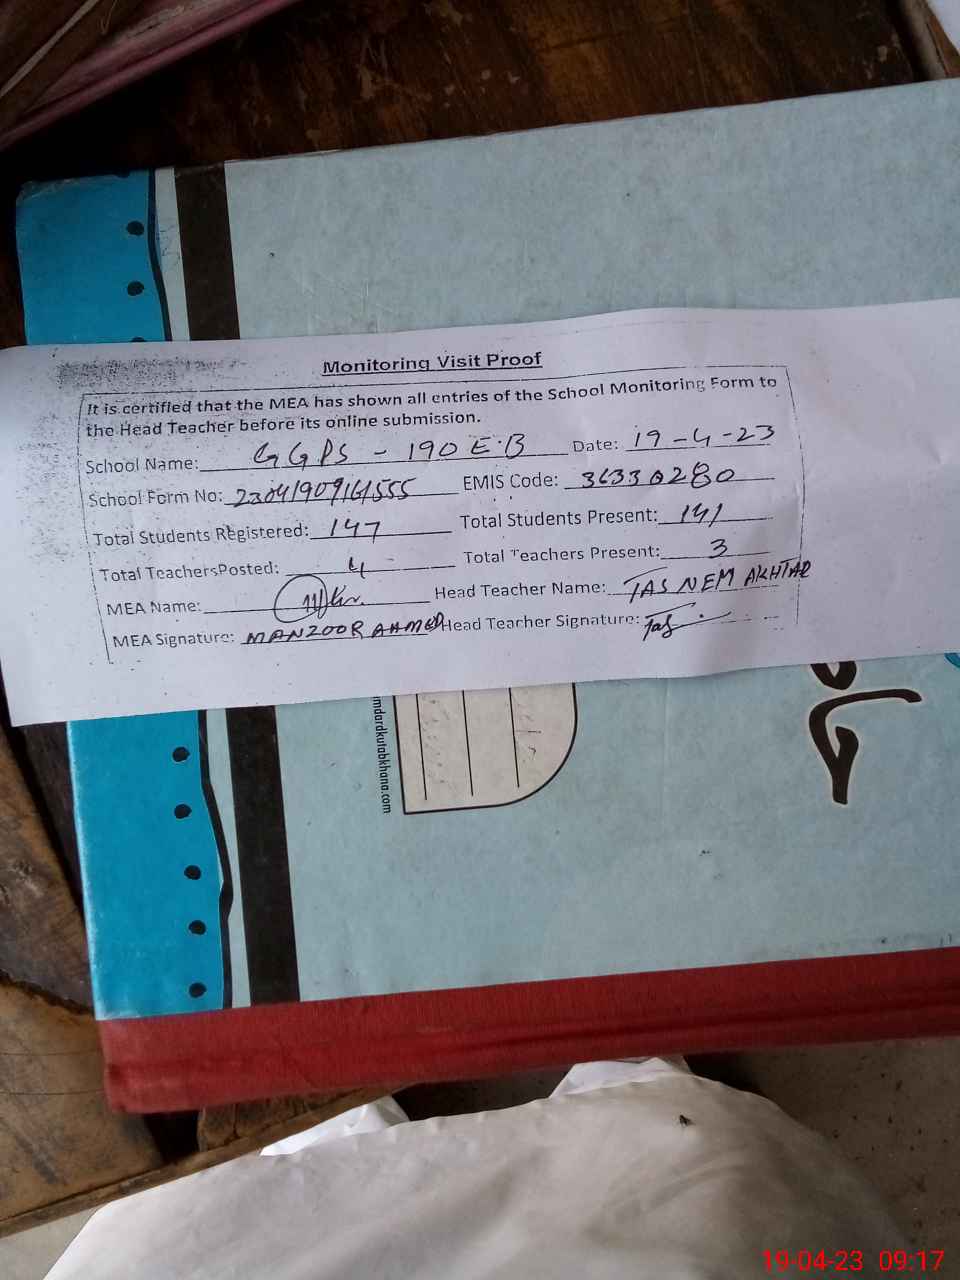 Monitoring Visit Proof
It is certified that the MEA has shown all entries of the School Monitoring Form to
the Head Teacher before its online submission.
School Name: GGPS - 190 E.B Date: 19-4-23
School Form No: EMIS Code: 36330280
Total Students Registered: 147 Total Students Present: 141
Total TeachersPosted: 4 Total Teachers Present: 3
MEA Name: Head Teacher Name: TAS NEM AKHTAR
MEA Signature: MANZOOR AHMED Head Teacher Signature: Tas
mdardkutabkhana.com
19-04-23 09:17